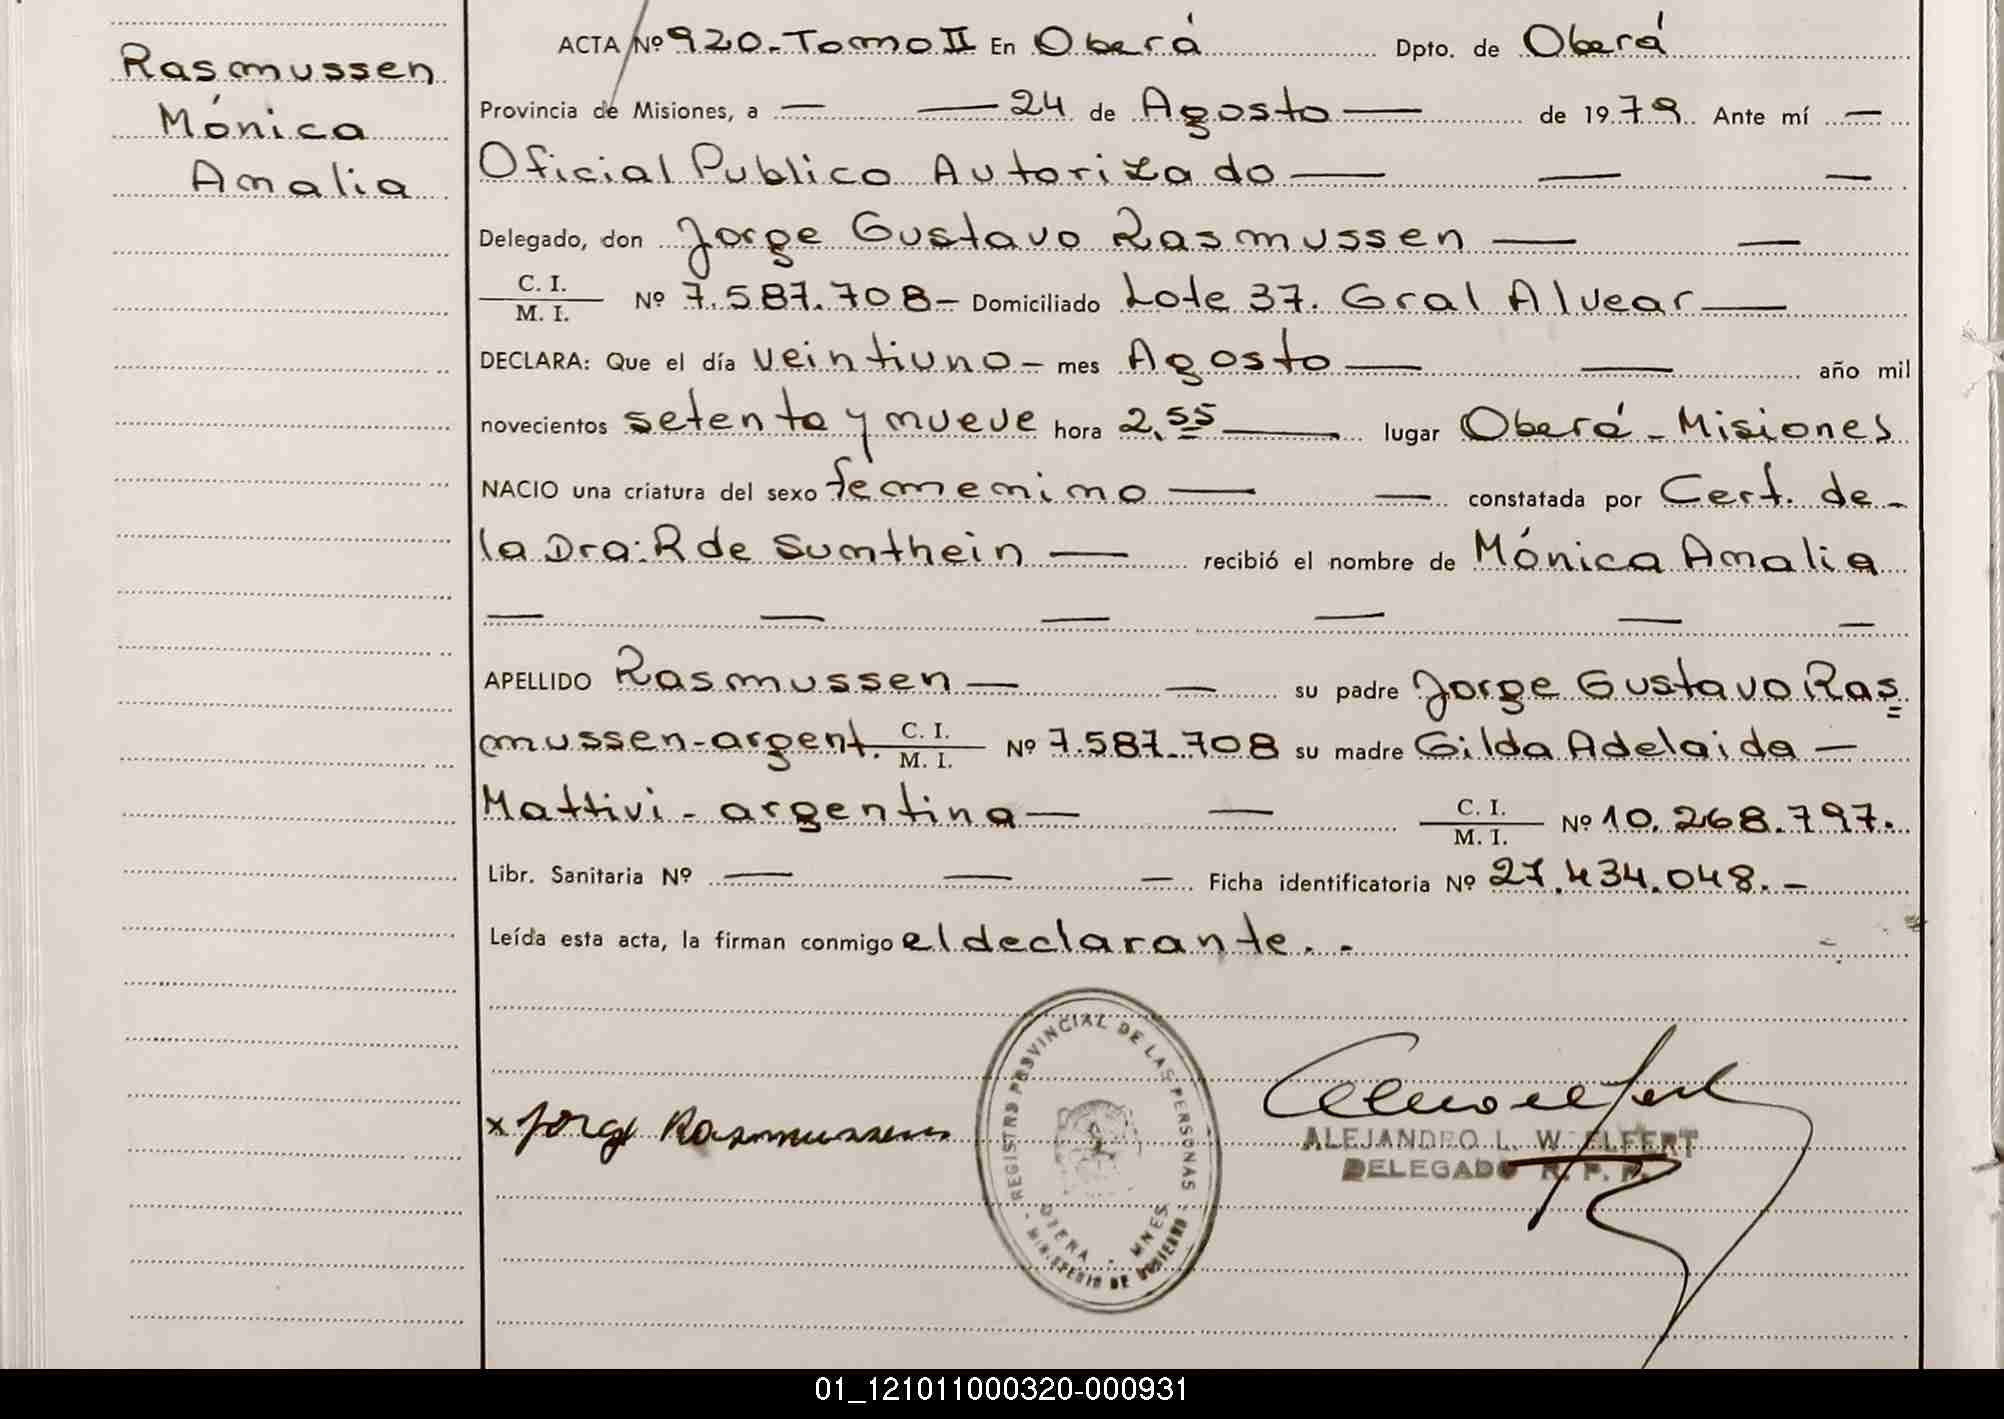 Rasmussen
Mónica
Amalia
ACTA Nº 920 - Tomo II En Oberá Dpto. de Oberá
Provincia de Misiones, a — — 24 de Agosto — de 1979 Ante mí —
Oficial Publico Autorizado — — —
Delegado, don Jorge Gustavo Rasmussen — —
C. I. / M. I. Nº 7.587.708 - Domiciliado Lote 37. Gral Alvear —
DECLARA: Que el día veintiuno - mes Agosto — — año mil
novecientos setenta y nueve hora 2,55 — lugar Oberá - Misiones
NACIO una criatura del sexo femenino — — constatada por Cert. de -
la Dra: R de Sumthein — recibió el nombre de Mónica Amalia
— — — — — —
APELLIDO Rasmussen — — su padre Jorge Gustavo Ras
mussen - argent. C. I. / M. I. Nº 7.587.708 su madre Gilda Adelaida —
Mattivi - argentina — — C. I. / M. I. Nº 10.268.797.
Libr. Sanitaria Nº — — — Ficha identificatoria Nº 27.434.048. -
Leída esta acta, la firman conmigo el declarante. . -
x Jorge Rasmussen
REGISTRO PROVINCIAL DE LAS PERSONAS
MNES
MINISTERIO DE GOBIERNO
ALEJANDRO L. W. ELFERT
DELEGADO R. P. P.
01_121011000320-000931